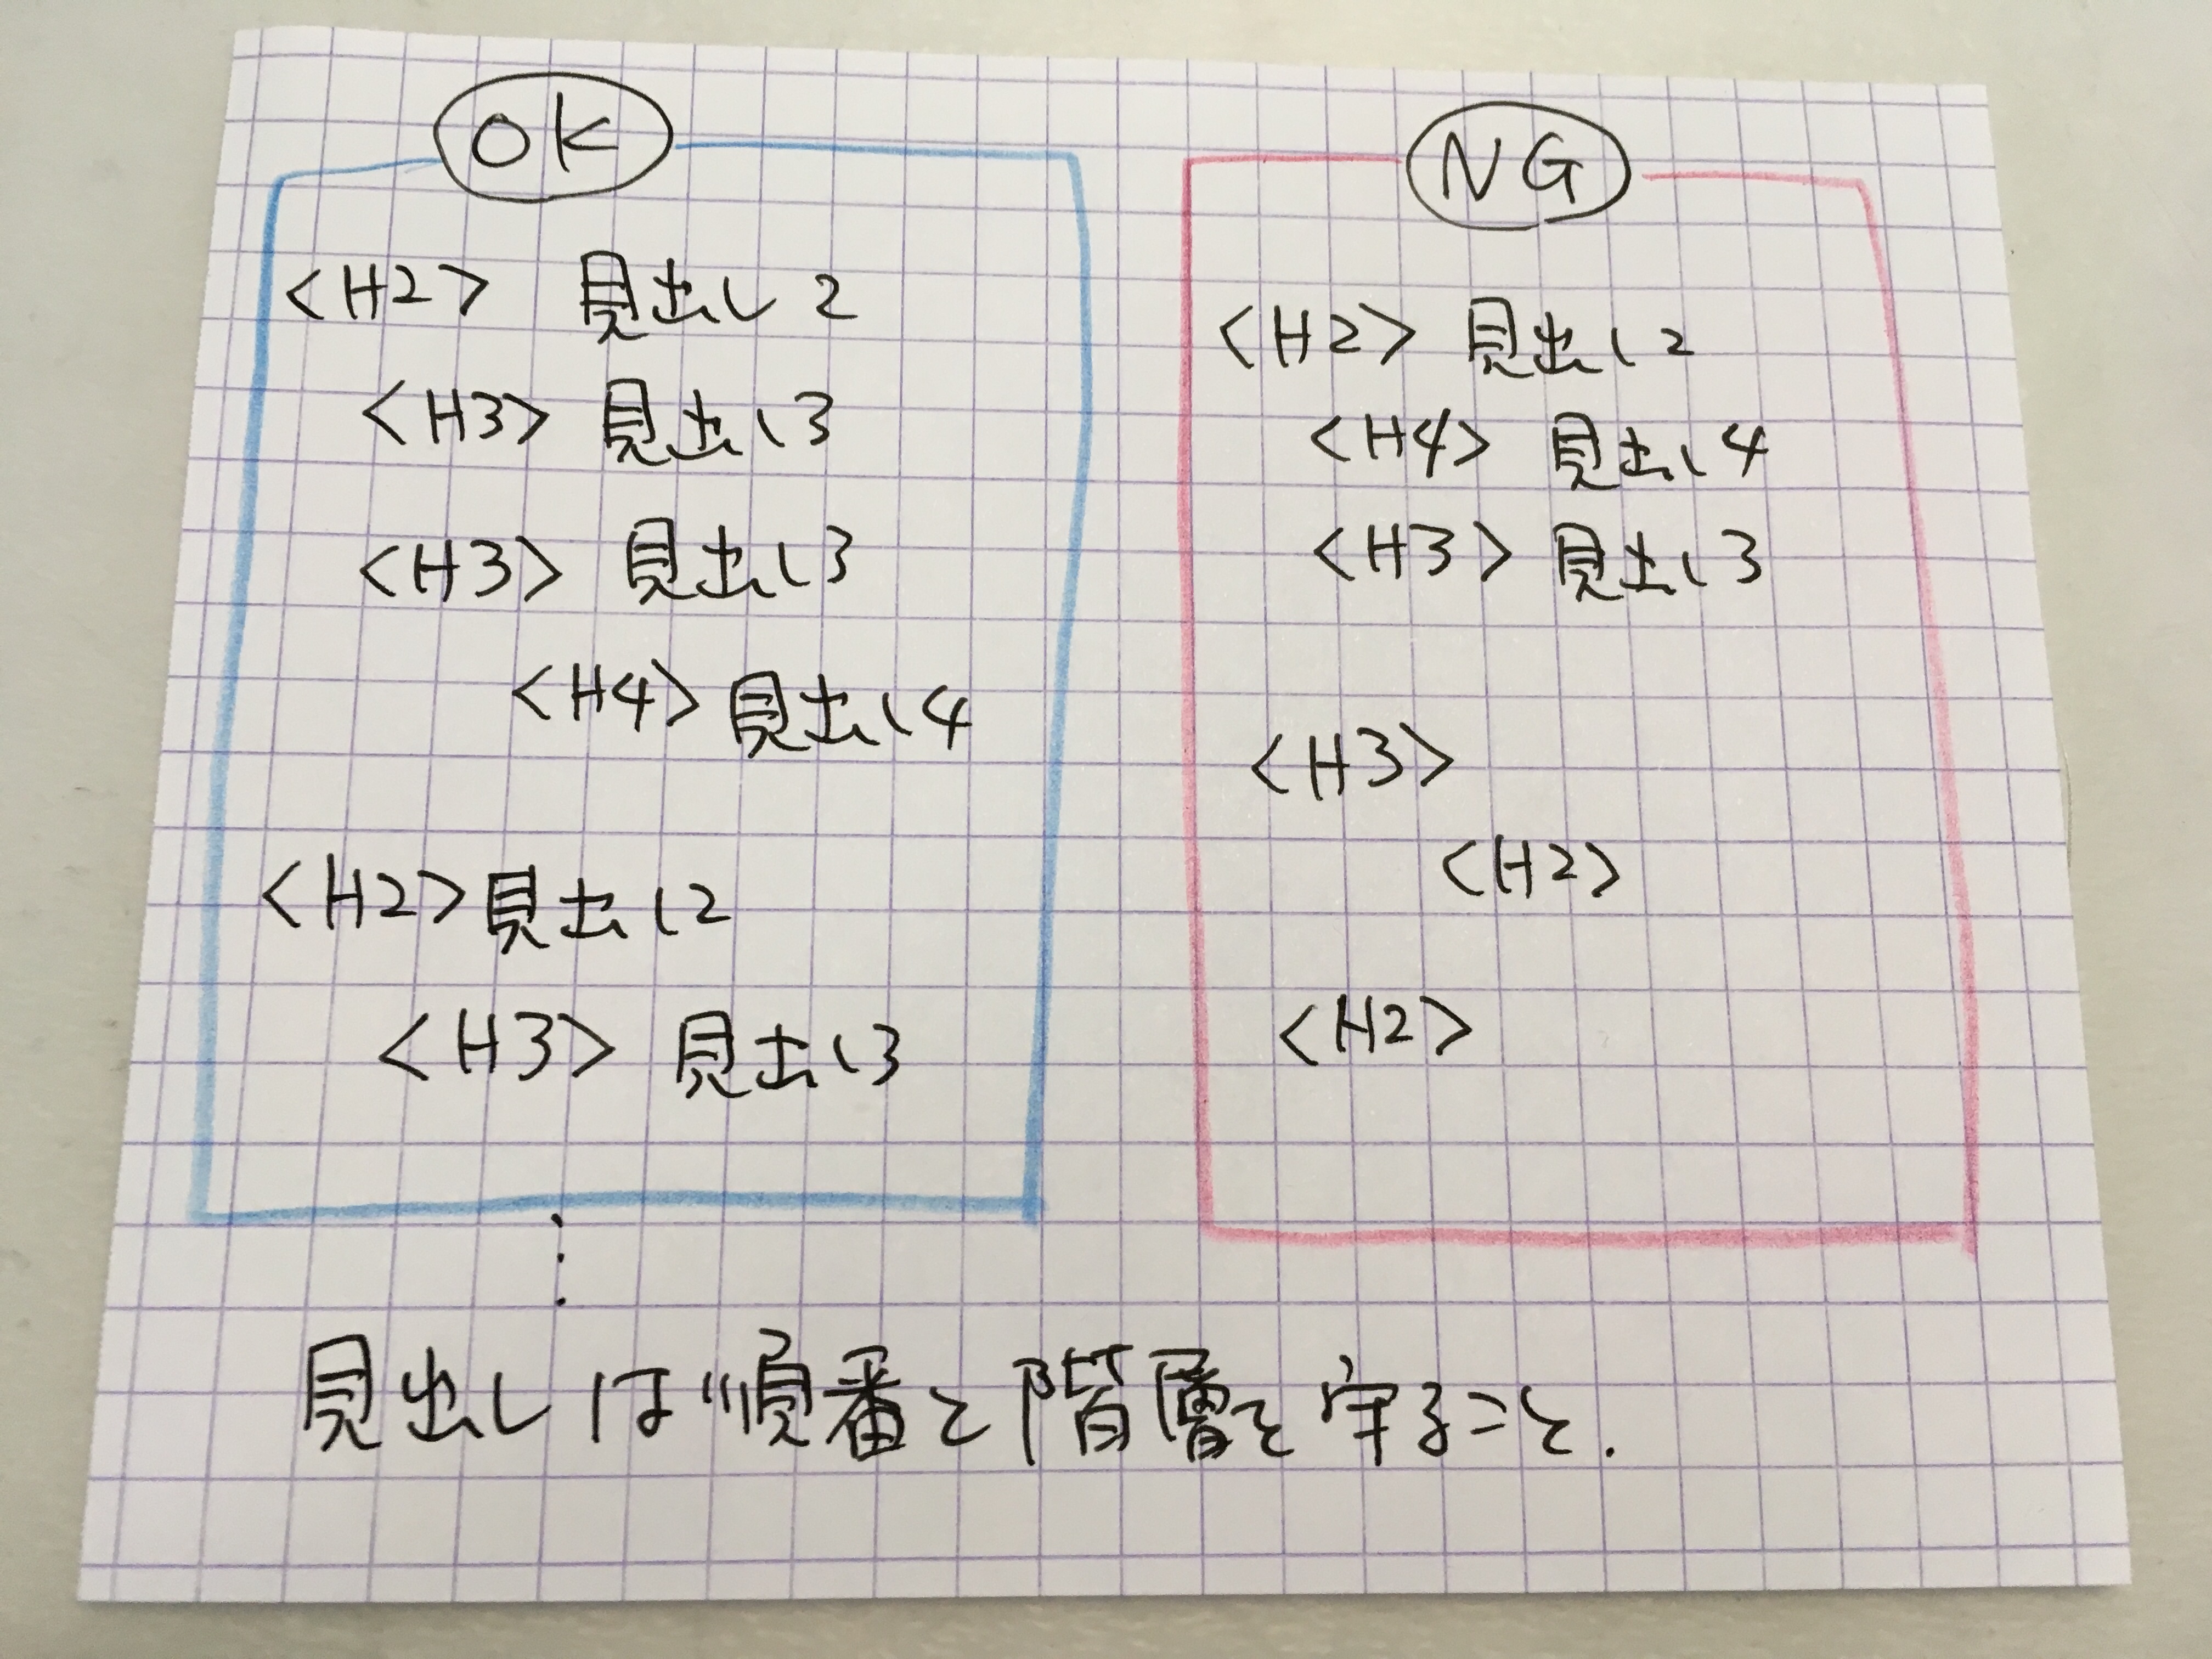 OK
<H2> 見出し2
<H3> 見出し3
<H3> 見出し3
<H4> 見出し4
<H2> 見出し2
<H3> 見出し3
⋮
NG
<H2> 見出し2
<H4> 見出し4
<H3> 見出し3
<H3>
<H2>
<H2>
見出しは順番と階層を守ること.